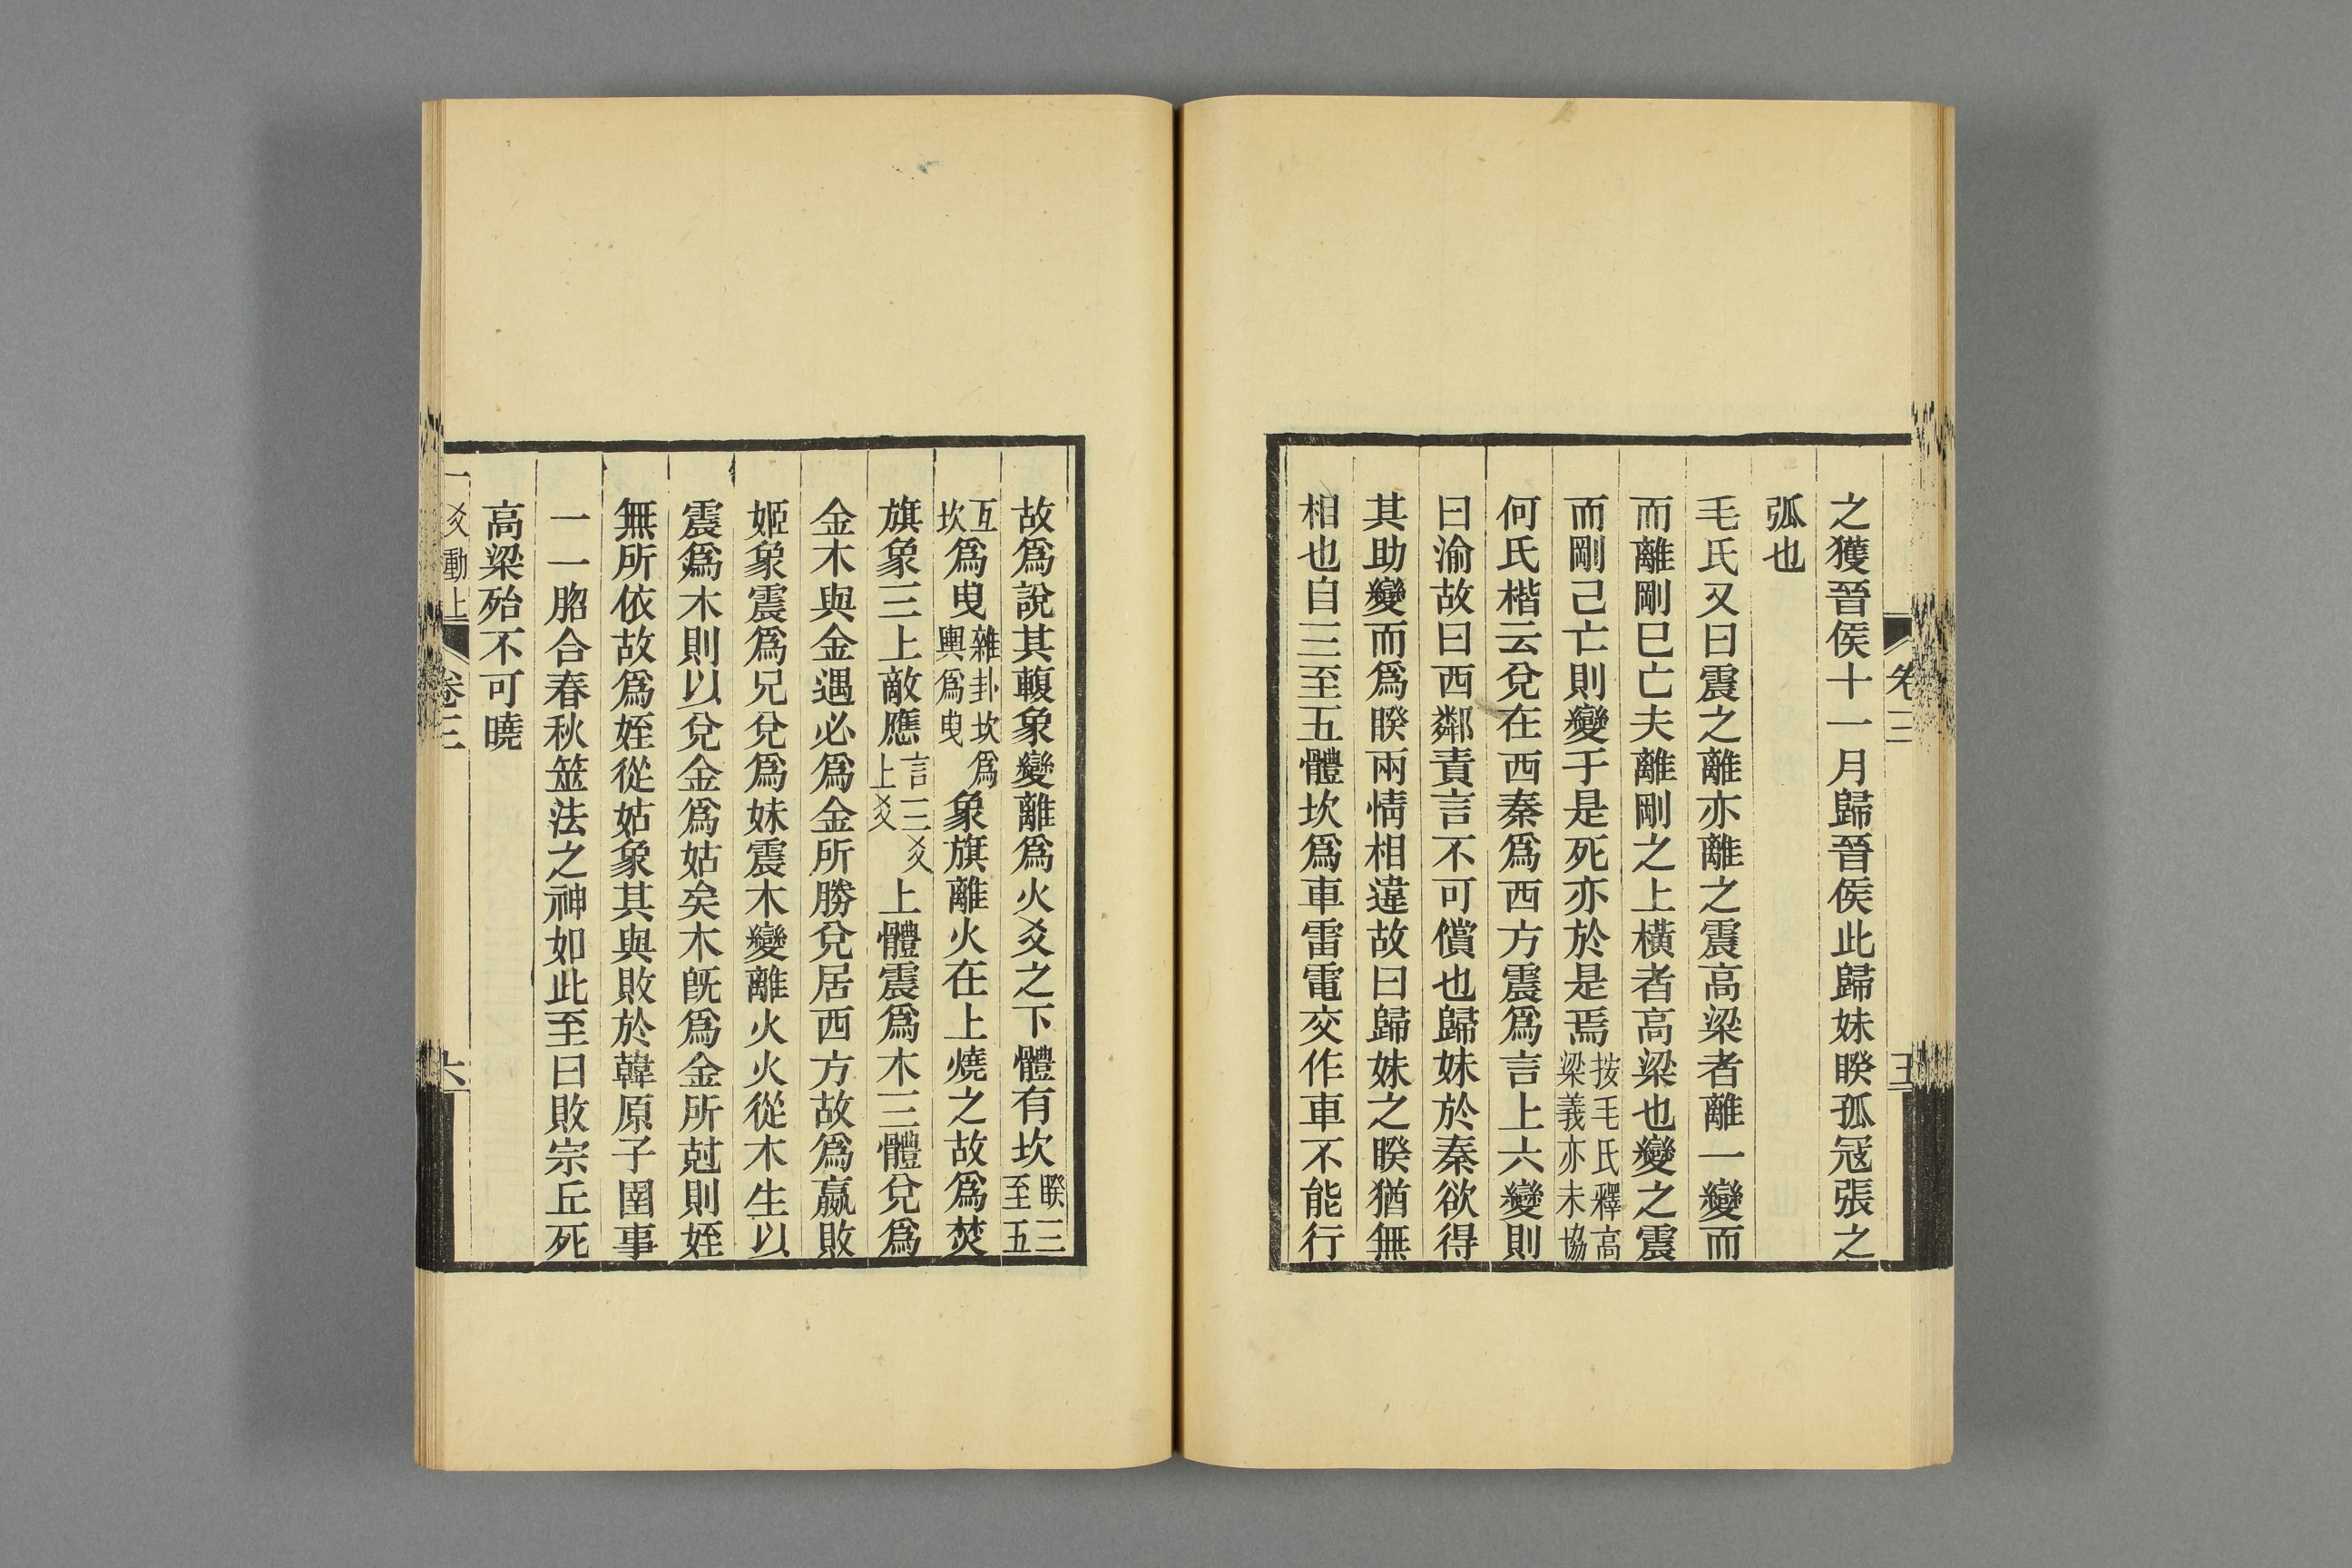 之獲晉侯十一月歸晉侯此歸妹睽孤冦張之
弧也
毛氏又曰震之離亦離之震高梁者離一變而
而離剛巳亡夫離剛之上橫者高梁也變之震
而剛己亡則變于是死亦於是焉按毛氏釋高梁義亦未協
何氏楷云兌在西秦爲西方震爲言上六變則
曰渝故曰西鄰責言不可償也歸妹於秦欲得
其助變而爲睽兩情相違故曰歸妹之睽猶無
相也自三至五體坎爲車雷電交作車不能行
卷三
五
故爲說其輹象變離爲火爻之下體有坎睽三至五
互坎爲曳雜卦坎爲輿爲曳象旗離火在上燒之故爲焚
旗象三上敵應言三爻上爻上體震爲木三體兌爲
金木與金遇必爲金所勝兌居西方故爲嬴敗
姬象震爲兄兌爲妹震木變離火火從木生以
震爲木則以兌金爲姑矣木旣爲金所尅則姪
無所依故爲姪從姑象其與敗於韓原子圉事
一一脗合春秋筮法之神如此至曰敗宗丘死
高梁殆不可曉
一爻動上
卷三
六